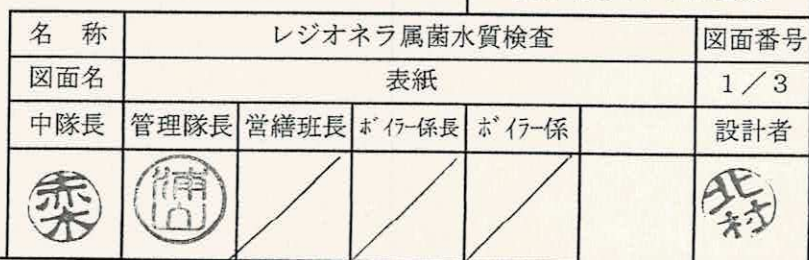 名 称 レジオネラ属菌水質検査 図面番号
図面名 表紙 1／3
中隊長 管理隊長 営繕班長 ボイラー係長 ボイラー係 設計者
北村